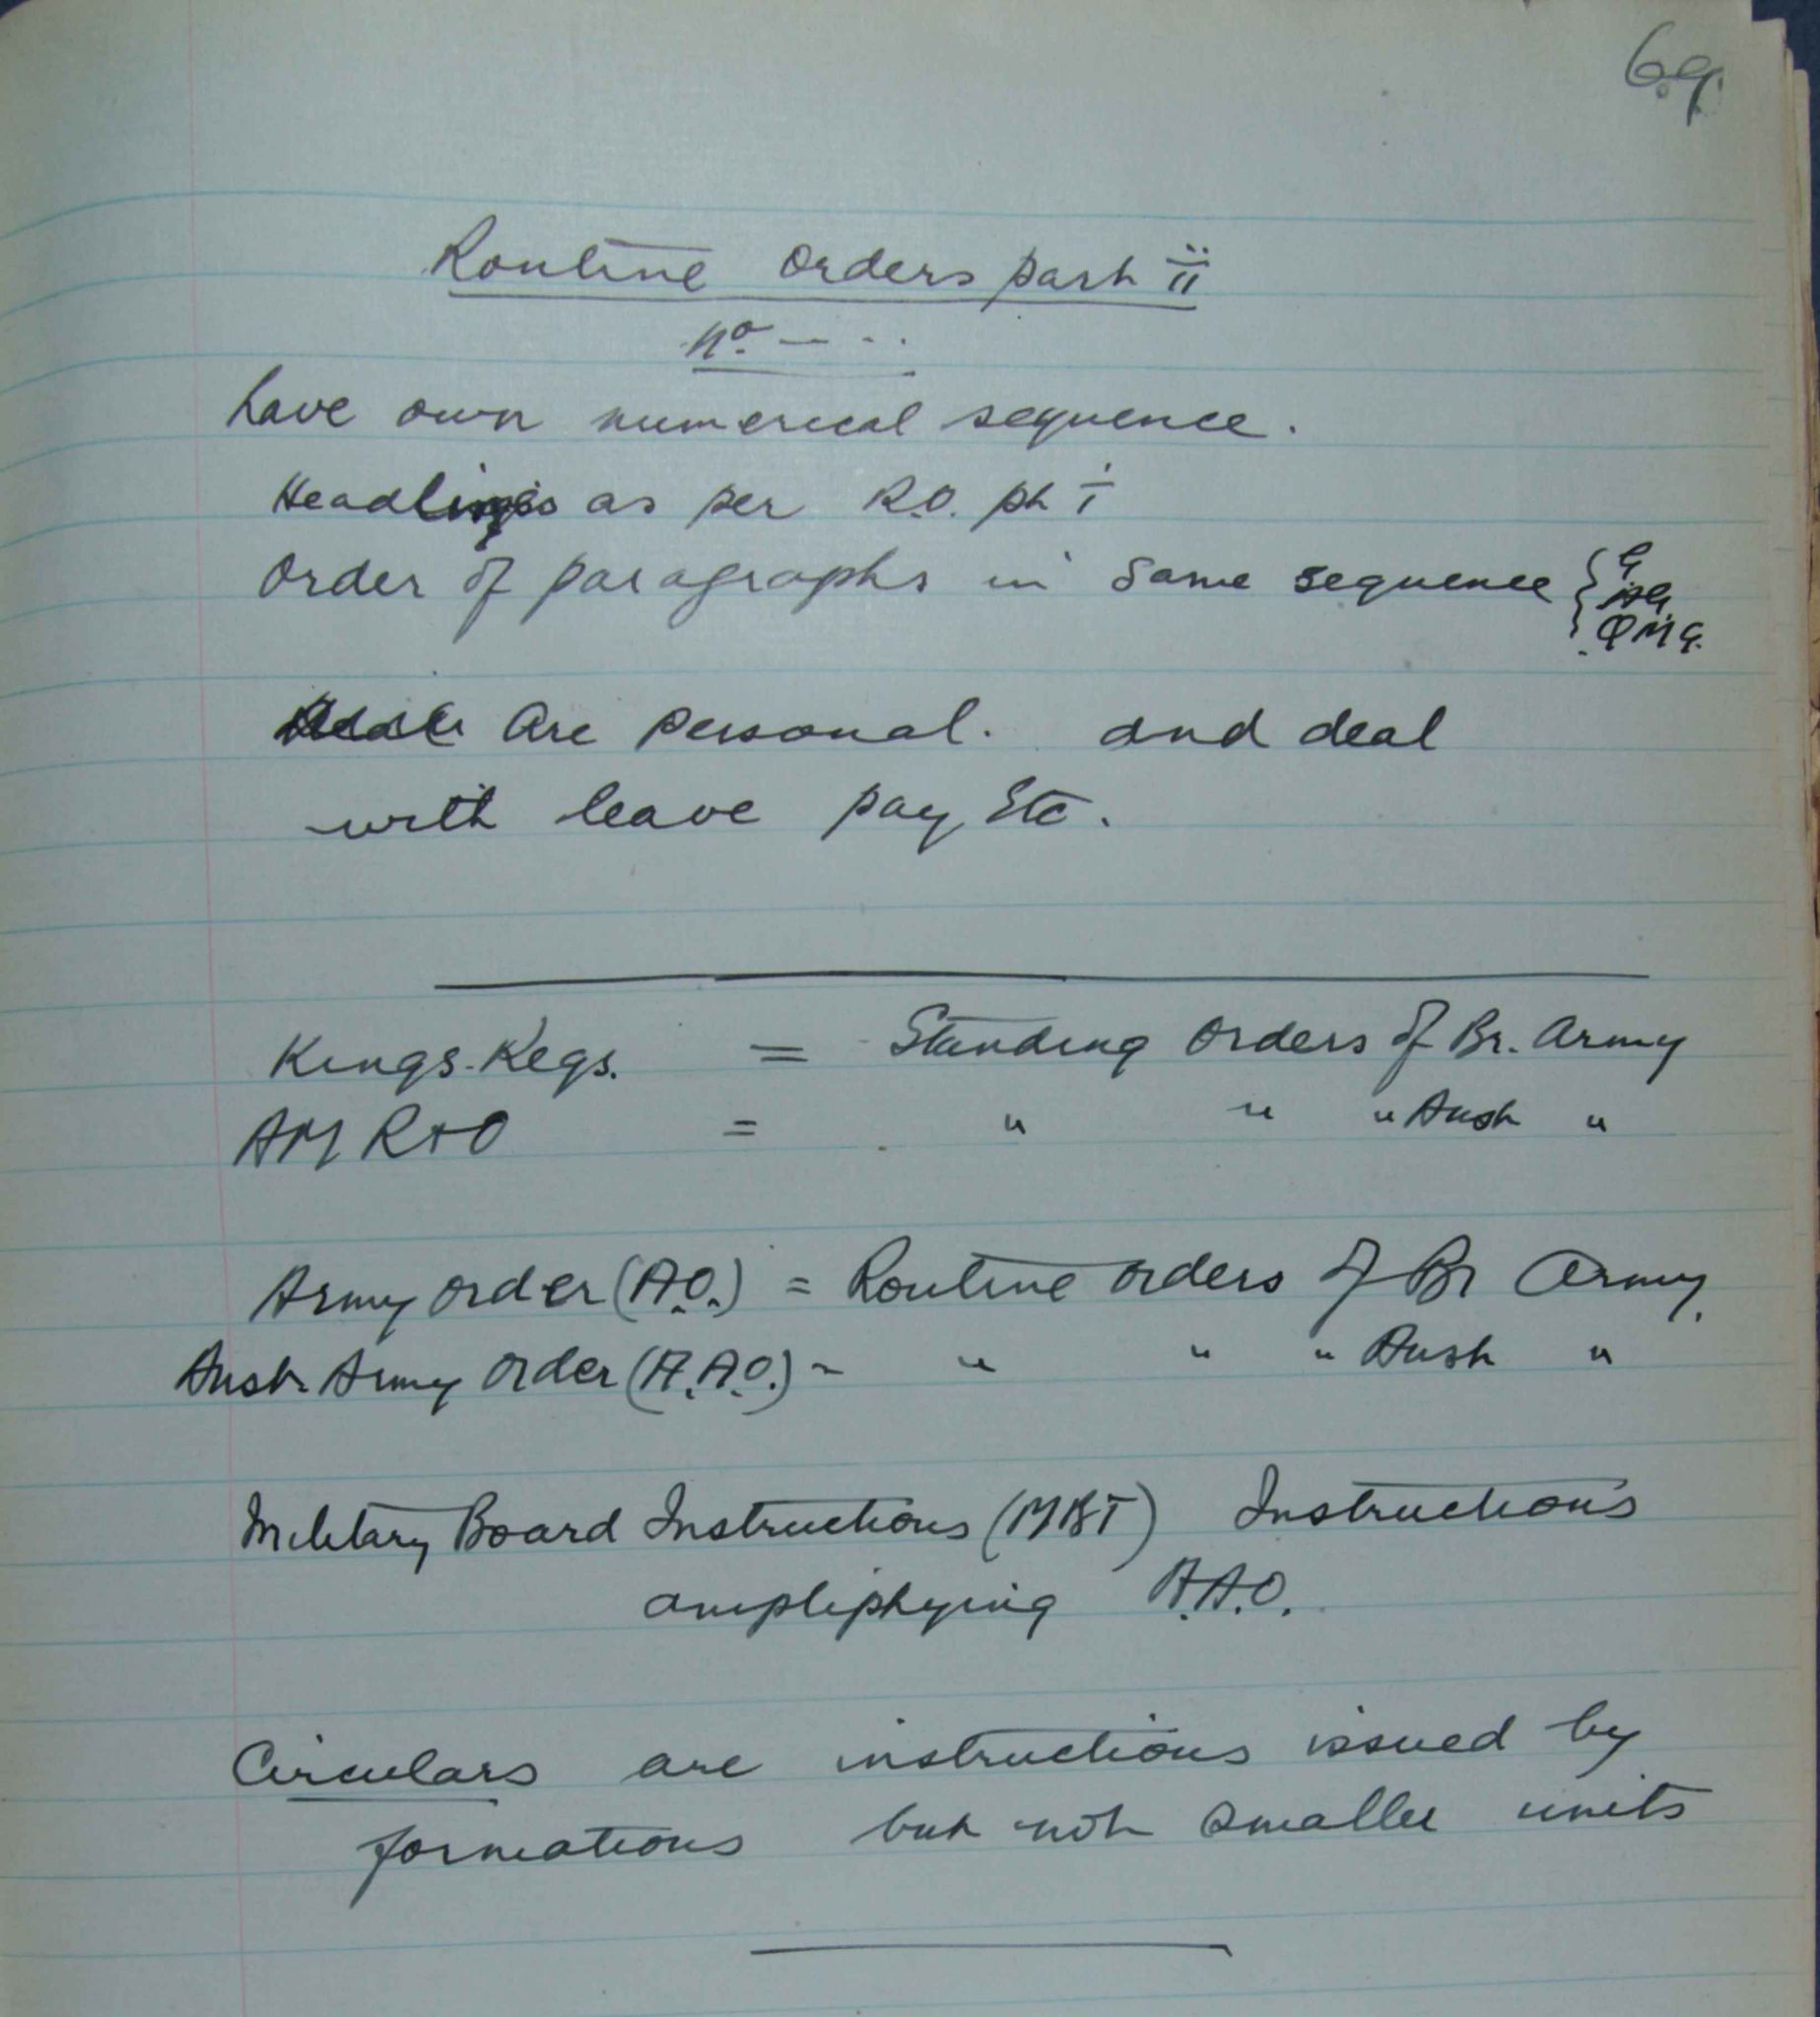 69.
Routine Orders part ii
No. — - ..
have own numerical sequence.
Headings as per R.O. pt i
Order of paragraphs in same sequence { G
AG
QMG.
Are personal. and deal
with leave pay, Etc.
Kings. Regs. = Standing Orders of Br. Army
AM R+O = " " " Aust "
Army order (A.O.) = Routine orders of Br Army.
Austr Army Order (A.A.O.) - " " " Aust "
Military Board Instructions (MBI) Instructions
ampliphying A.A.O.
Circulars are instructions issued by
formations but not smaller units